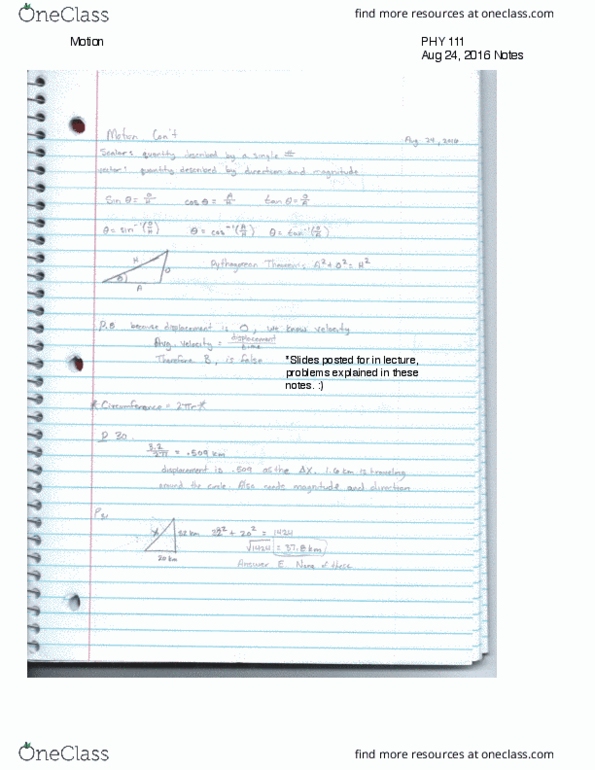 OneClass
find more resources at oneclass.com
Motion
PHY 111
Aug 24, 2016 Notes
Motion Con't
Aug 24, 2016
Scalars quantity described by a single #
vector: quantity described by direction and magnitude
Sin θ = O/H cos θ = A/H tan θ = O/A
θ = sin⁻¹(O/H) θ = cos⁻¹(A/H) θ = tan⁻¹
H
θ
O
A
Pythagorean Theorem: A² + O² = H²
because displacement is 0, we know velocity
Avg. velocity = displacement/time
Therefore B, is false
*Slides posted for in lecture,
problems explained in these
notes. :)
* Circumference = 2πr *
P 30
3.2/2π = .509 km
displacement is .509 as the ΔX. 1.6 km is traveling
around the circle. Also needs magnitude and direction
P31
X
32 km
20 km
+ 20² = 1424
√1424 = 37.8 km
Answer E. None of these.
OneClass
find more resources at oneclass.com